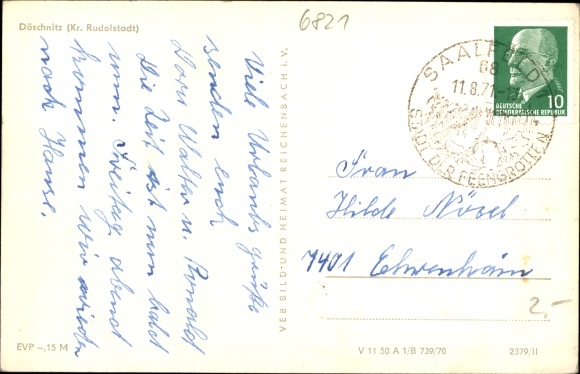 Döschnitz (Kr. Rudolstadt)
6821
Viele Urlaubsgrüße
senden euch
Dora Walter u. Ronald
Die Zeit ist nun bald
um. Freitag abend
kommen wir wieder
nach Hause.
VEB BILD-UND HEIMAT REICHENBACH i. V.
SAALFELD
68
11.8.71
STADT DER FEENGROTTEN
10
DEUTSCHE
DEMOKRATISCHE REPUBLIK
Frau
Hilde Nösel
7401 Ehrenhain
2,-
EVP -,15 M
V 11 50 A 1/B 739/70
2379/II